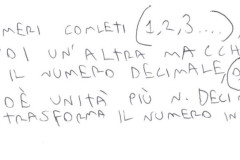 MERI COMLETI (1,2,3....),
DI UN'ALTRA MACCH
IL NUMERO DECIMALE,
OÈ UNITÀ PIÙ N. DECI
TRASFORMA IL NUMERO IN